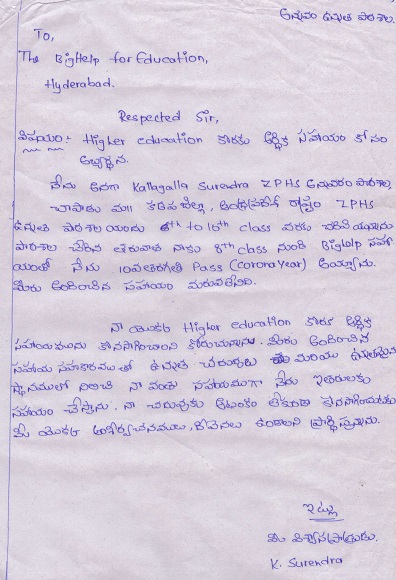 అన్నవరం ఉన్నత పాఠశాల.
To,
The BigHelp for Education,
Hyderabad.
Respected Sir,
విషయం :- Higher education కొరకు ఆర్థిక సహాయం కోసం
అభ్యర్థన.
నేను అనగా Kallagalla Surendra ZPHS అన్నవరం పాఠశాల,
చాపాడు మం కడప జిల్లా, ఆంధ్రప్రదేశ్ రాష్ట్రం ZPHS
ఉన్నత పాఠశాలయందు 6th to 10th class వరకు చదివియున్నాను
పాఠశాల చేరిన తరువాత నాకు 8th class నుండి BigHelp సహా
యంతో నేను 10వతరగతి Pass (Corona Year) అయ్యాను.
మీరు అందించిన సహాయం మరువలేనిది.
నా యొక్క Higher education కొరకు ఆర్థిక
సహాయమును కొనసాగించాలని కోరుచున్నాను. మీరు అందించిన
సహాయ సహకారములతో ఉన్నత చదువులు మరియు ఉన్నతమైన
స్థానములో నిలిచి నా వంతు సహాయముగా నేను ఇతరులకు
సహాయం చేస్తాను. నా చదువుకు ఆటంకం లేకుండా కొనసాగించుటకు
మీ యొక్క ఆశీర్వచనములు, దీవెనలు ఉండాలని ప్రార్థిస్తున్నాను.
ఇట్లు
మీ విశ్వాసపాత్రుడు.
K. Surendra